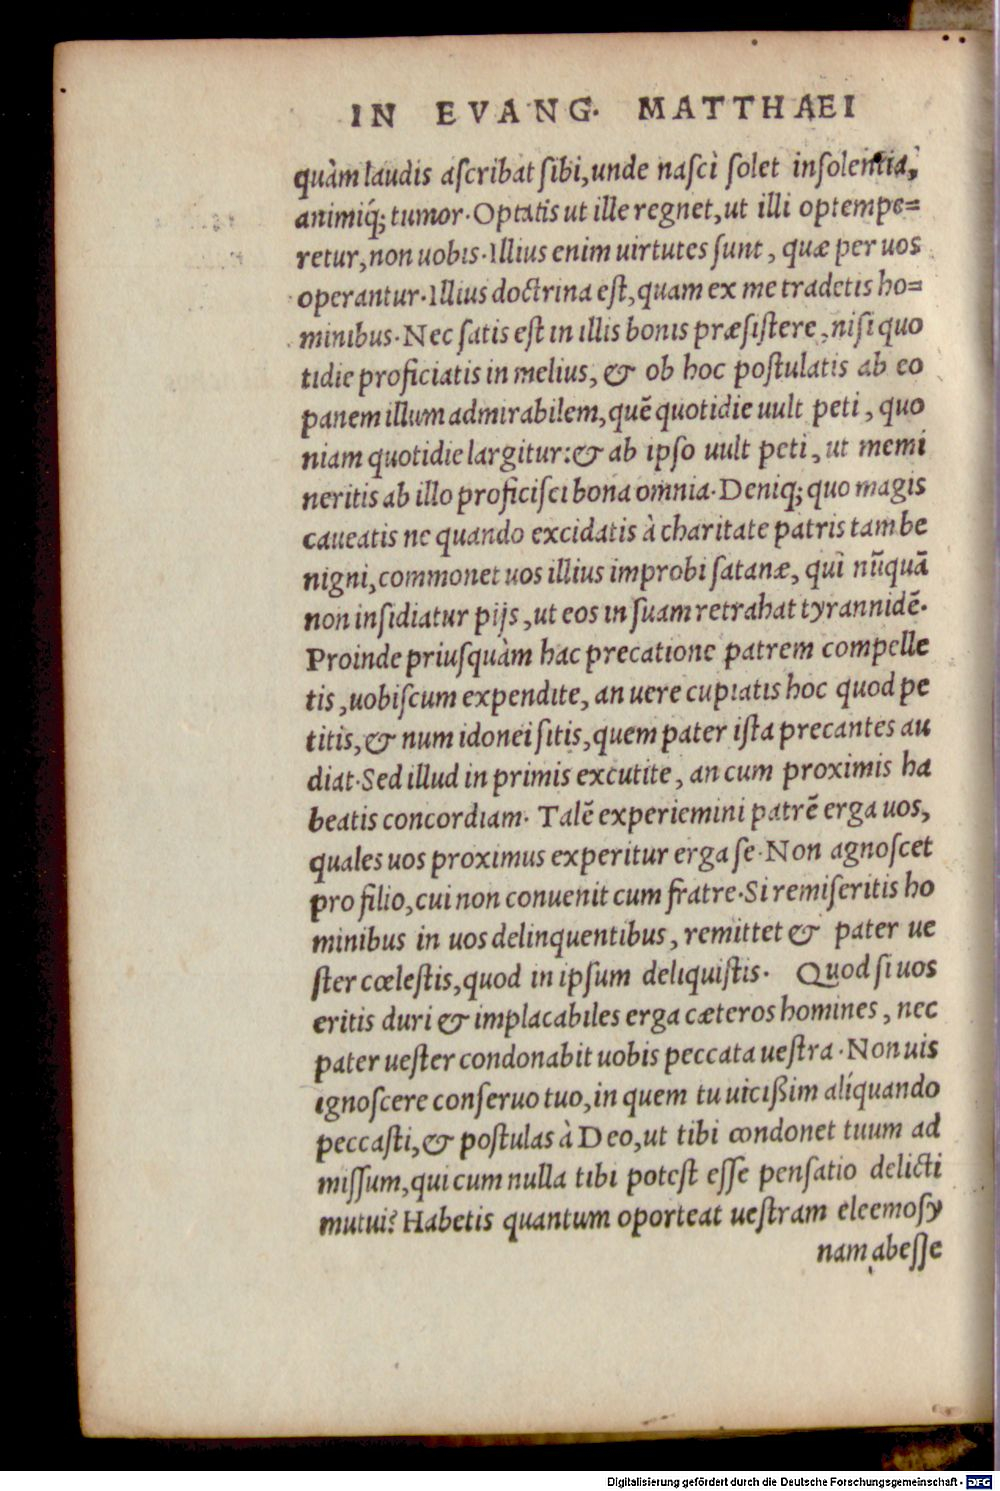 IN EVANG. MATTHAEI
quàm laudis ascribat sibi, unde nasci solet insolentia,
animiq́; tumor. Optatis ut ille regnet, ut illi optempe=
retur, non uobis. Illius enim uirtutes sunt, quæ per uos
operantur. Illius doctrina est, quam ex me tradetis ho=
minibus. Nec satis est in illis bonis præsistere, nisi quo
tidie proficiatis in melius, & ob hoc postulatis ab eo
panem illum admirabilem, quē quotidie uult peti, quo
niam quotidie largitur: & ab ipso uult peti, ut memi
neritis ab illo proficisci bona omnia. Deniq; quo magis
caueatis ne quando excidatis à charitate patris tam be
nigni, commonet uos illius improbi satanæ, qui nūquā
non insidiatur pijs, ut eos in suam retrahat tyrannidē.
Proinde priusquàm hac precatione patrem compelle
tis, uobiscum expendite, an uere cupiatis hoc quod pe
titis, & num idonei sitis, quem pater ista precantes au
diat. Sed illud in primis excutite, an cum proximis ha
beatis concordiam. Talē experiemini patrē erga uos,
quales uos proximus experitur erga se. Non agnoscet
pro filio, cui non conuenit cum fratre. Si remiseritis ho
minibus in uos delinquentibus, remittet & pater ue
ster cœlestis, quod in ipsum deliquistis. Quod si uos
eritis duri & implacabiles erga cæteros homines, nec
pater uester condonabit uobis peccata uestra. Non uis
ignoscere conseruo tuo, in quem tu uicißim alíquando
peccasti, & postulas à Deo, ut tibi condonet tuum ad
missum, qui cum nulla tibi potest esse pensatio delicti
mutui? Habetis quantum oporteat uestram eleemosy
nam abesse
Digitalisierung gefördert durch die Deutsche Forschungsgemeinschaft - DFG